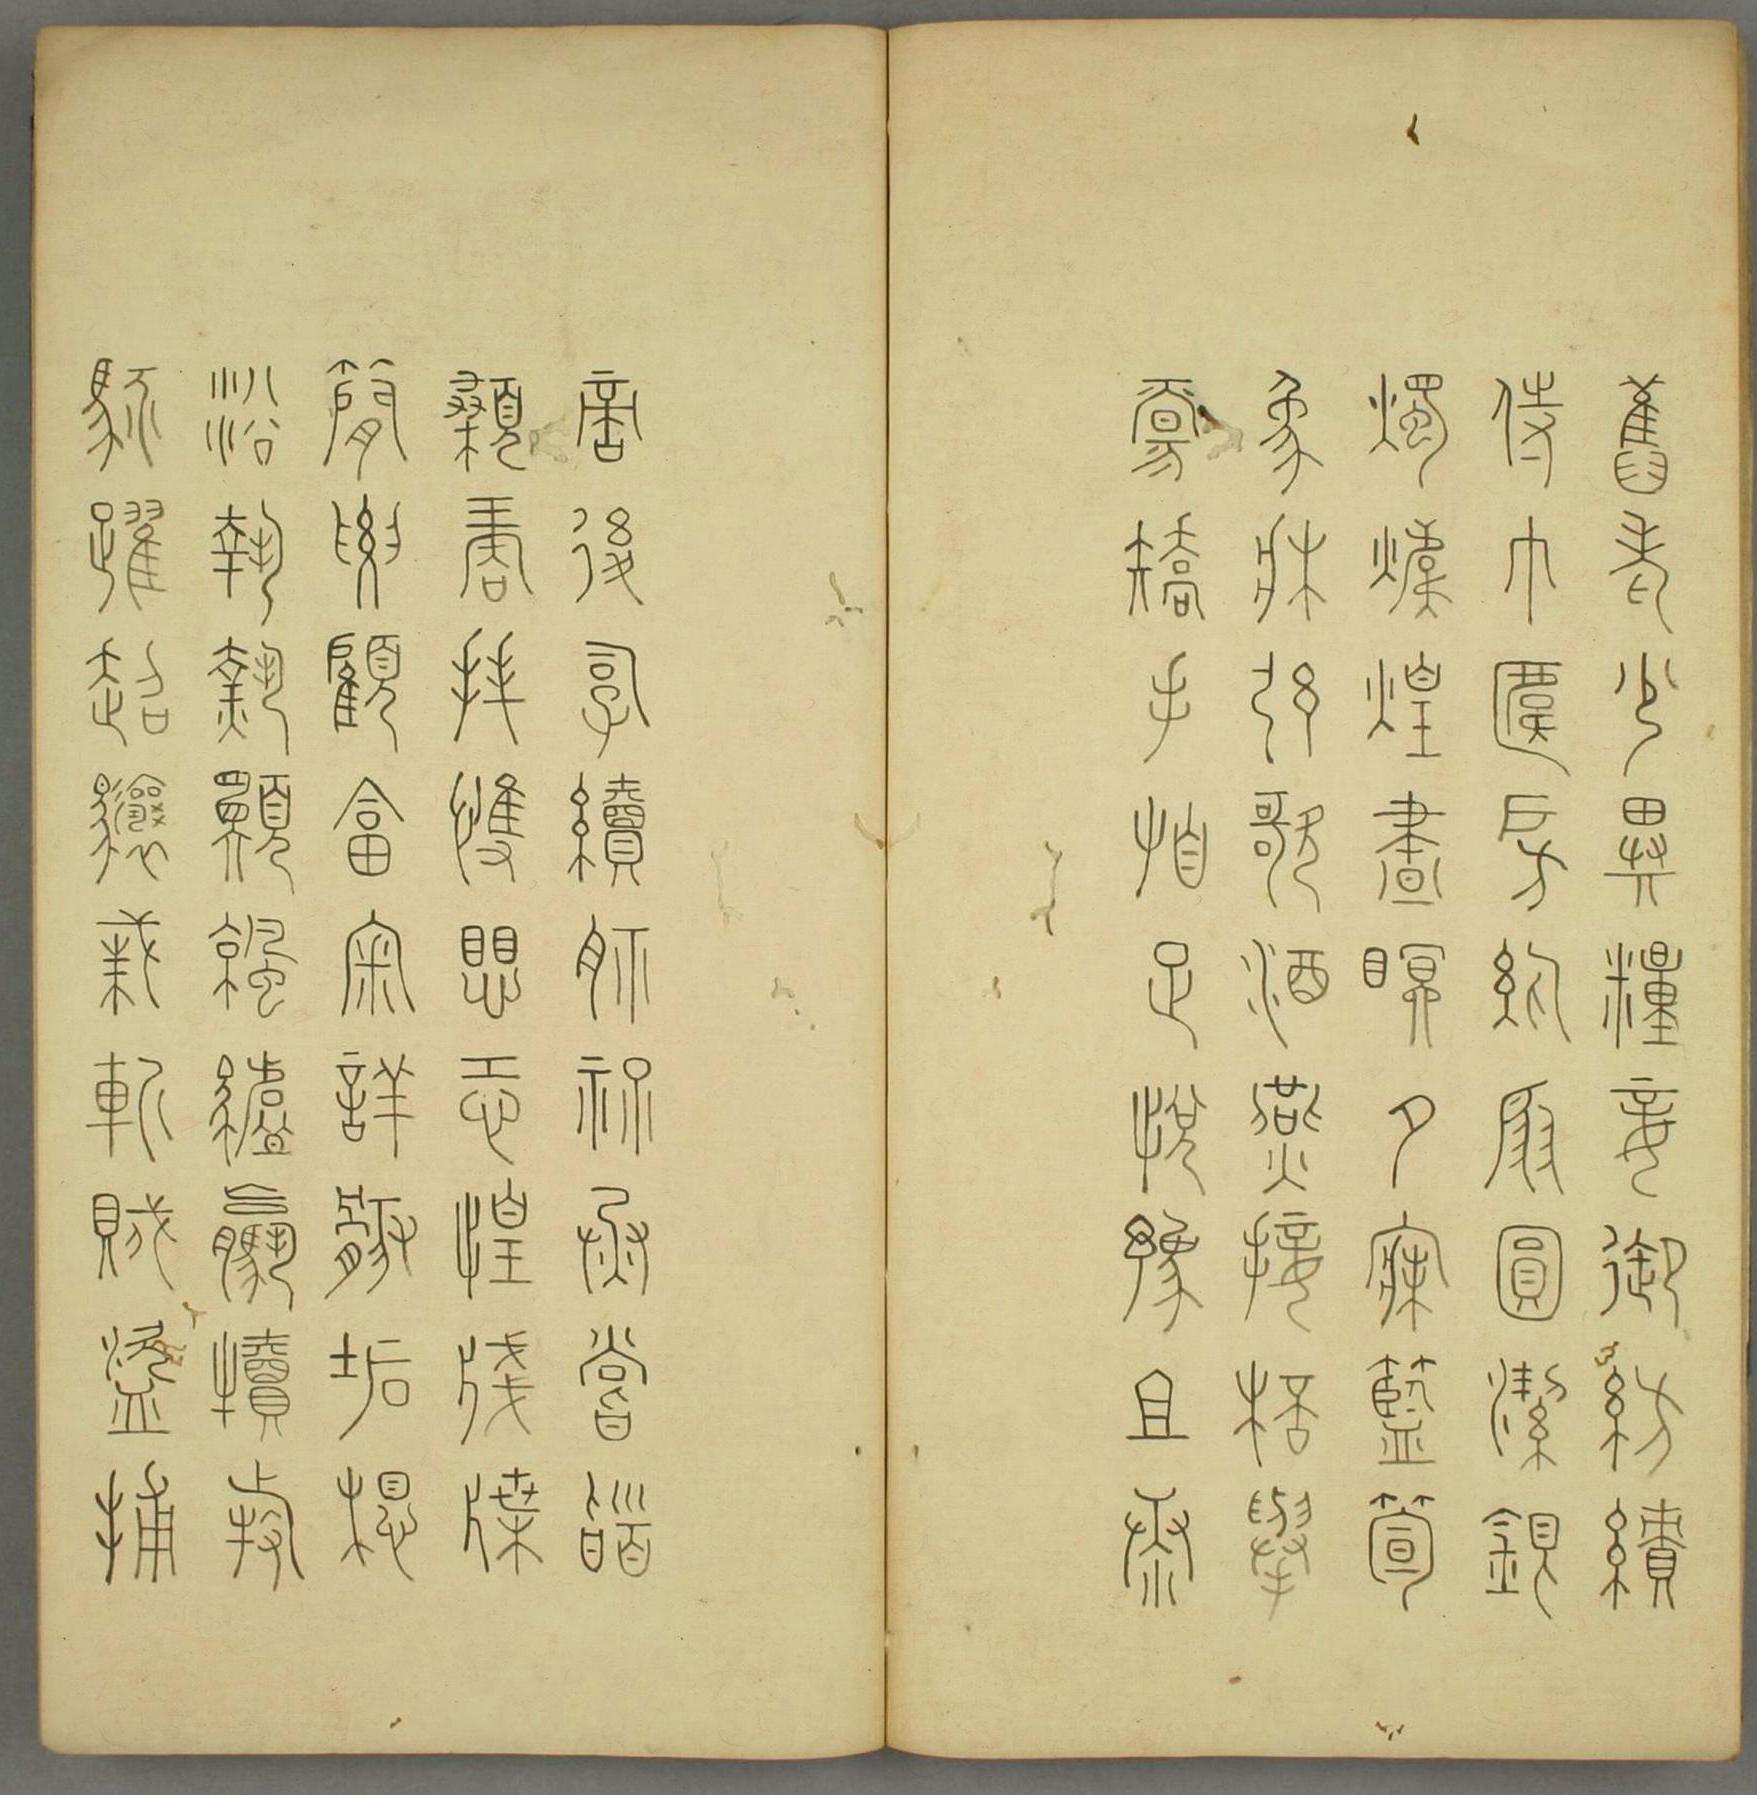 舊老少異糧妾御紡績
侍巾帷房紈扇圓潔銀
燭煒煌晝眠夕寐籃筍
象牀弦歌酒讌接杯舉
觴矯手頓足悅豫且康
嫡後嗣續祭祀烝嘗稽
顙再拜悚懼恐惶牋牒
簡要顧答審詳骸垢想
浴執熱願涼驢騾犢特
駭躍超驤誅斬賊盜捕